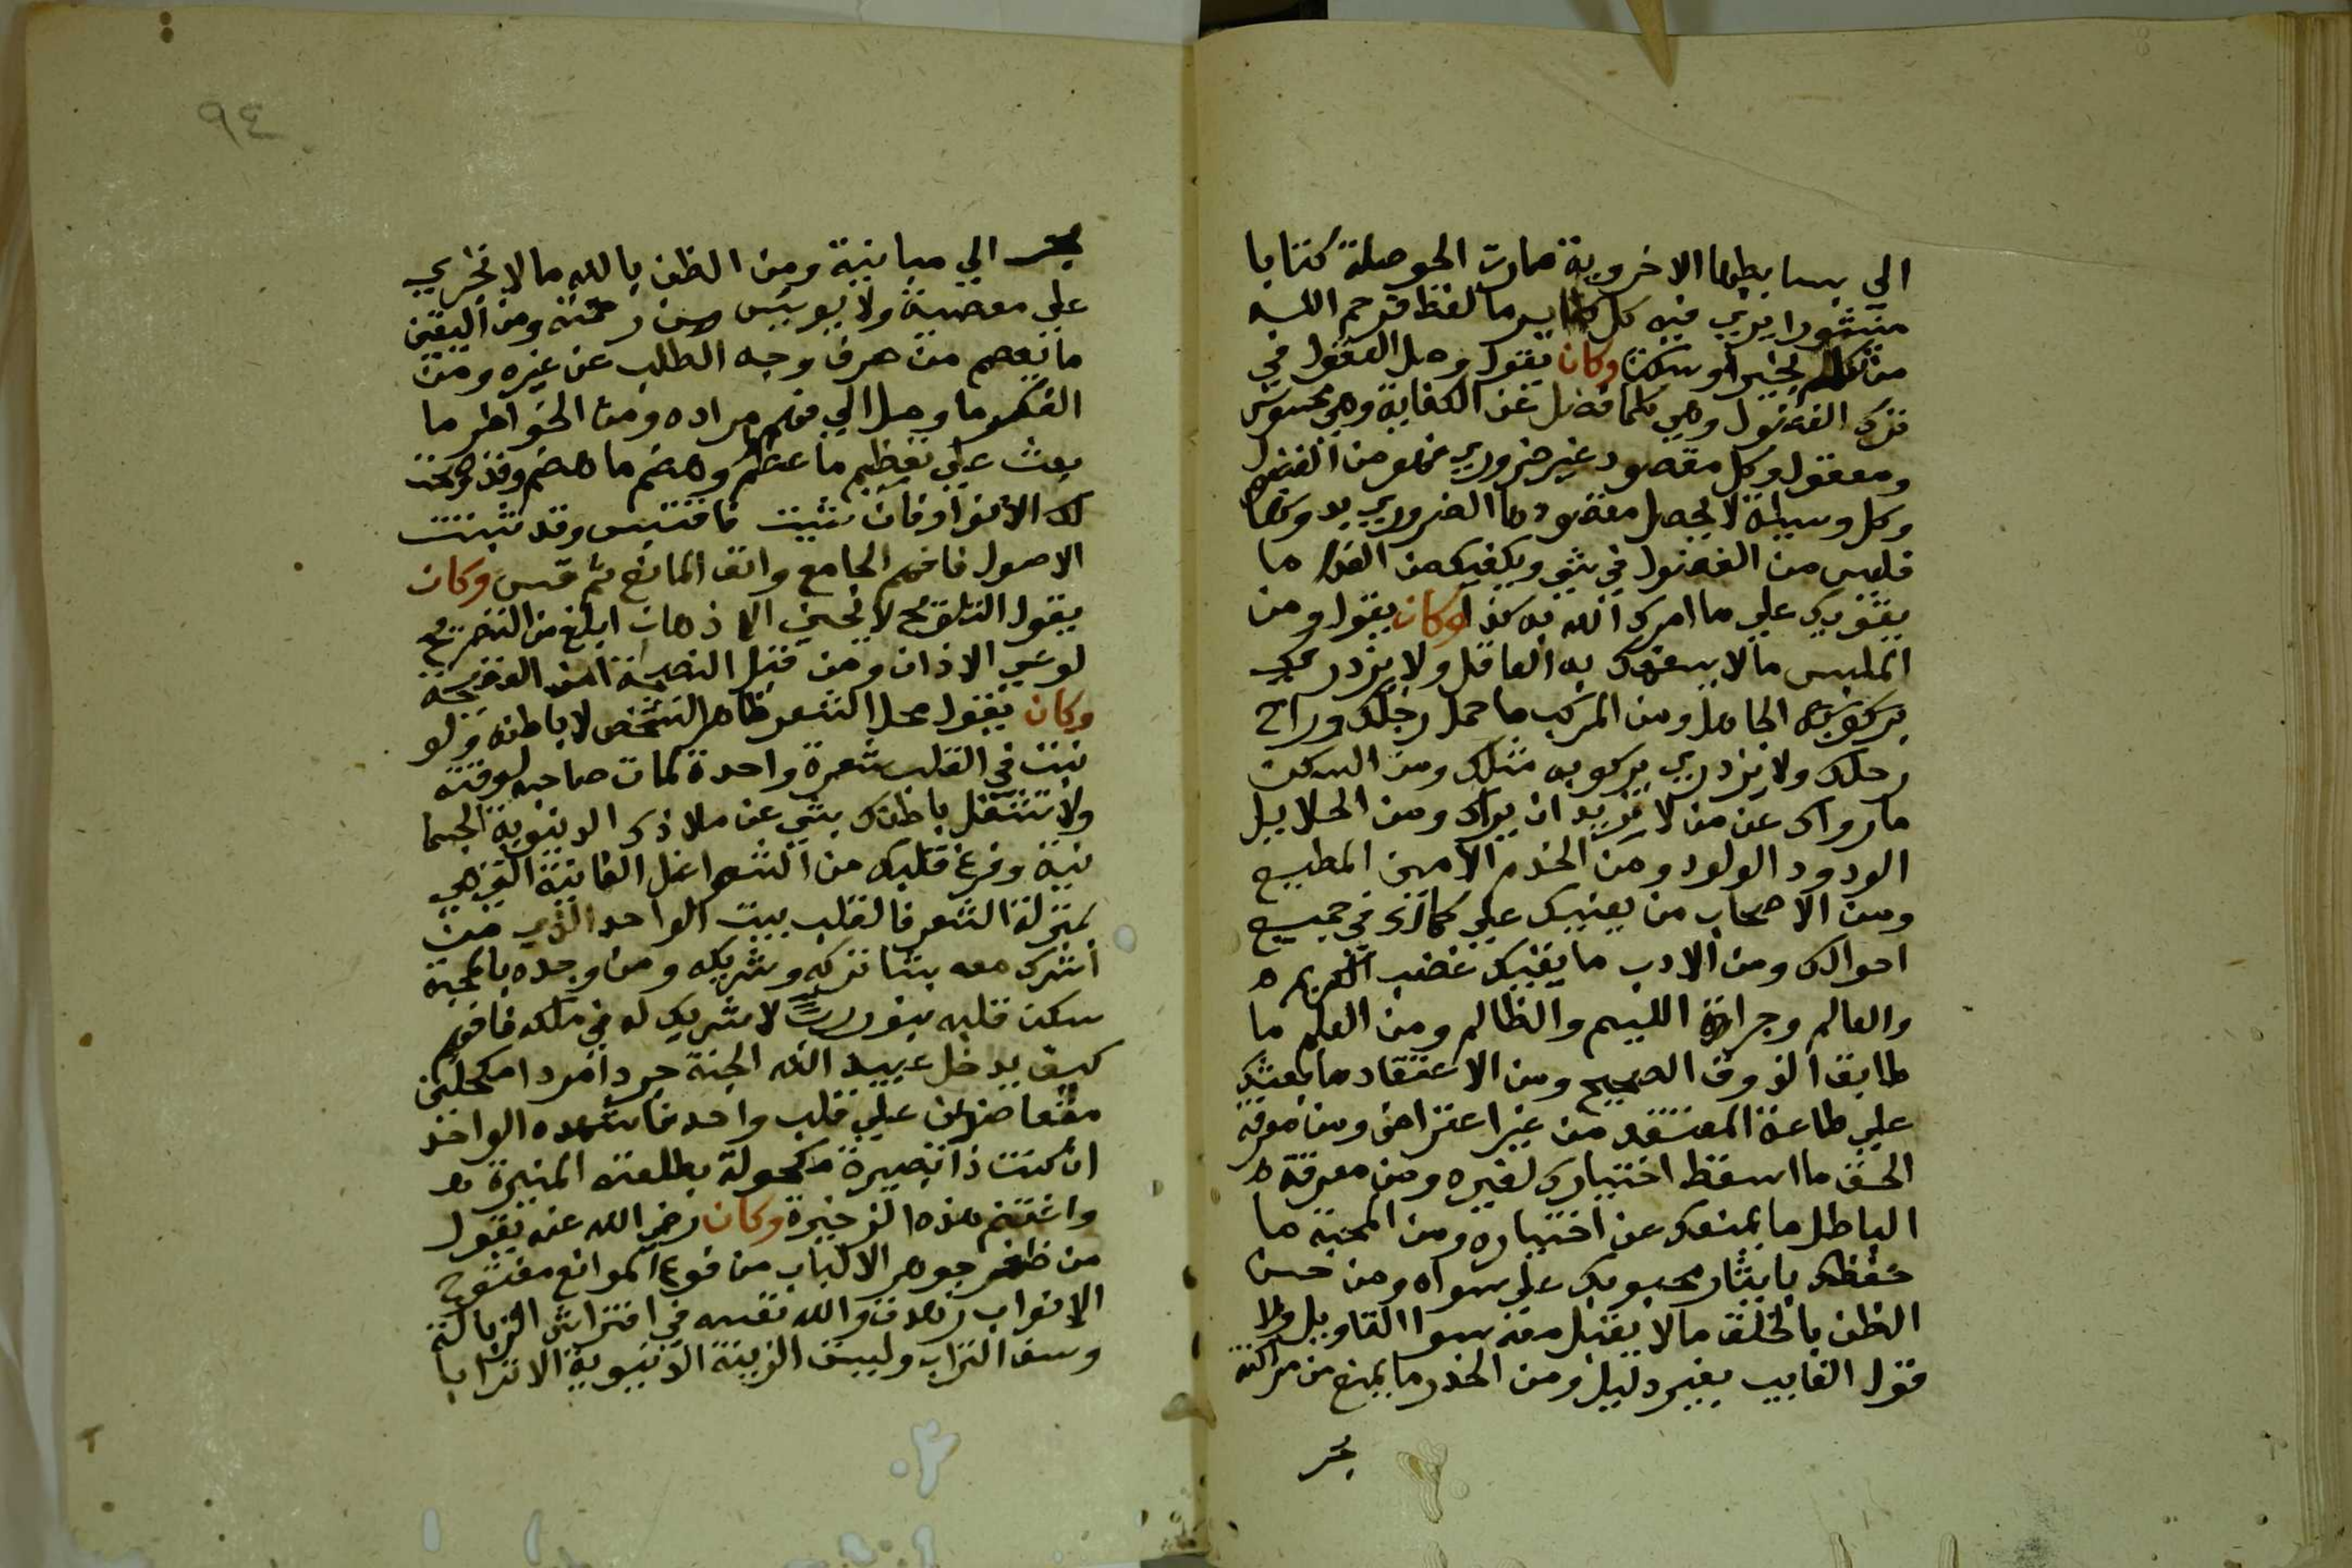 الي بسايطها الاخروية صارت الحوصلة كتابا
منشورا يري فيه كل ما لفظ فرحم الله
من تكلم بخير او سكت وكان يقول وصل العقول في
ترك الفضول وهي كلما فضل عن الكفاية وهي محسوس
ومعقول وكل مقصود غير ضروري فهو من الفضول
وكل وسيلة لا يحصل مقصودها الضروري بدونها
فليس من الفضول في شي ويكفيك من الغذا ما
يقويك علي ما امرك الله به كذا وكان يقول ومن
الملبس ما لا يسفهك به العاقل ولا يزدريك
به الجاهل ومن المركب ما حمل رجلك وراح
رحلك ولا يزدري بركوبه مثلك ومن السكن
ما رواك عن من لا تريد ان يراك ومن الحلايل
الودود الولود ومن الخدم الامين المطيع
ومن الاصحاب من يعينك علي كمالك في جميع
احوالك ومن الادب ما يقيك غضب الكريم
والعالم وجراة الليم والظالم ومن العلم ما
طابق الذوق الصحيح ومن الاعتقاد ما بعثك
علي طاعة المعتقد من غير اعتراض ومن معرفة
الحق ما اسقط اختيارك لغيره ومن معرفة
الباطل ما يمنعك عن اختياره ومن المحبة ما
حققك بايثار محبوبك علي سواه ومن حسن
الظن بالخلق ما لا يقبل معه سوا التاويل ولا
قول الغايب بغير دليل ومن الحذر ما يمنع من مراكنة
تجر
تجر الي مباينة ومن الظن بالله ما لا يجري
علي معصية ولا يويس من رحمته ومن اليقين
ما يعصم من صرف وجه الطلب عن غيره ومن
الفكر ما وصل الي فهم مراده ومن الخواطر ما
بعث علي تعظيم ما عظم وهضم ما هضم وقد وضحت
لك الانوار فان شيت فاقتبس وقد ثبتت
الاصول فافهم الجامع واتق المانع ثم قس وكان
يقول التلويح لا لحني الاذهان ابلغ من التصريح
لوعي الاذان ومن قبل النصيحة امن الفضيحة
وكان يقول محل الشعر ظاهر الشخص لا باطنه ولو
نبت في القلب شعرة واحدة لمات صاحبه لوقته
ولا تشغل باطنك بشي عن ملاذك الدنيوية الجسما
نية وفرغ قلبك من الشواغل الفانية التي هي
بمنزلة الشعر فالقلب بيت الواحد الذي من
اشرك معه شيا تركه وشريكه ومن وجده بالمحبة
سكن قلبه بنور لا شريك له في ملكه فافهم
كيف يدخل عبيد الله الجنة جردا مردا مكحلين
علي قلب واحد فاشهده الواحد
ان كنت ذا بصيرة مكحولة بطلعته المنيرة
واغتنم هذه الذخيرة وكان رضي الله عنه يقول
من ظفر بجوهر الالباب من فوع الموانع مفتوح
الابواب زهدت والله نفسه في افتراش الزبالة
وسف التراب وليست الزينة الدنيوية الا ترابا
٩٤